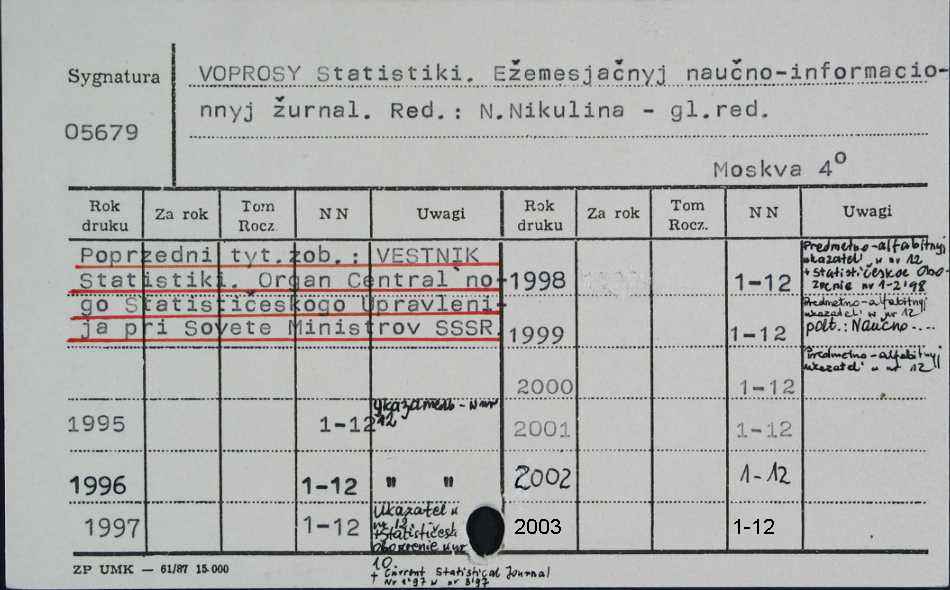 Sygnatura
VOPROSY Statistiki. Ežemesjačnyj naučno-informacio-
05679
nnyj žurnal. Red.: N.Nikulina - gl.red.
Moskva 4º
Rok druku Za rok Tom Rocz. N N Uwagi Rok druku Za rok Tom Rocz. N N Uwagi
Poprzedni tyt.zob.: VESTNIK
Statistiki. Organ Central`no-
go Statističeskogo Upravleni-
ja pri Sovete Ministrov SSSR.
1998 1-12 Predmetno-alfabitnyj
ukazatel' w nr 12
+ Statističeskoe Obo-
zrenie nr 1-2'98
1999 1-12 Predmetno-alfabitnyj
ukazatel' w nr 12
polt.: Naučno-....
2000 1-12 Predmetno-alfabitnyj
ukazatel' w nr 12
1995 1-12 указатель - w nr
12
2001 1-12
1996 1-12 " "
2002 1-12
1997 1-12 Ukazatel w
nr 12.
+Statističesk
obozrenie w nr
10.
+ Current Statistical Journal
Nr 1'97 w nr 3'97
2003 1-12
ZP UMK — 61/87 15.000